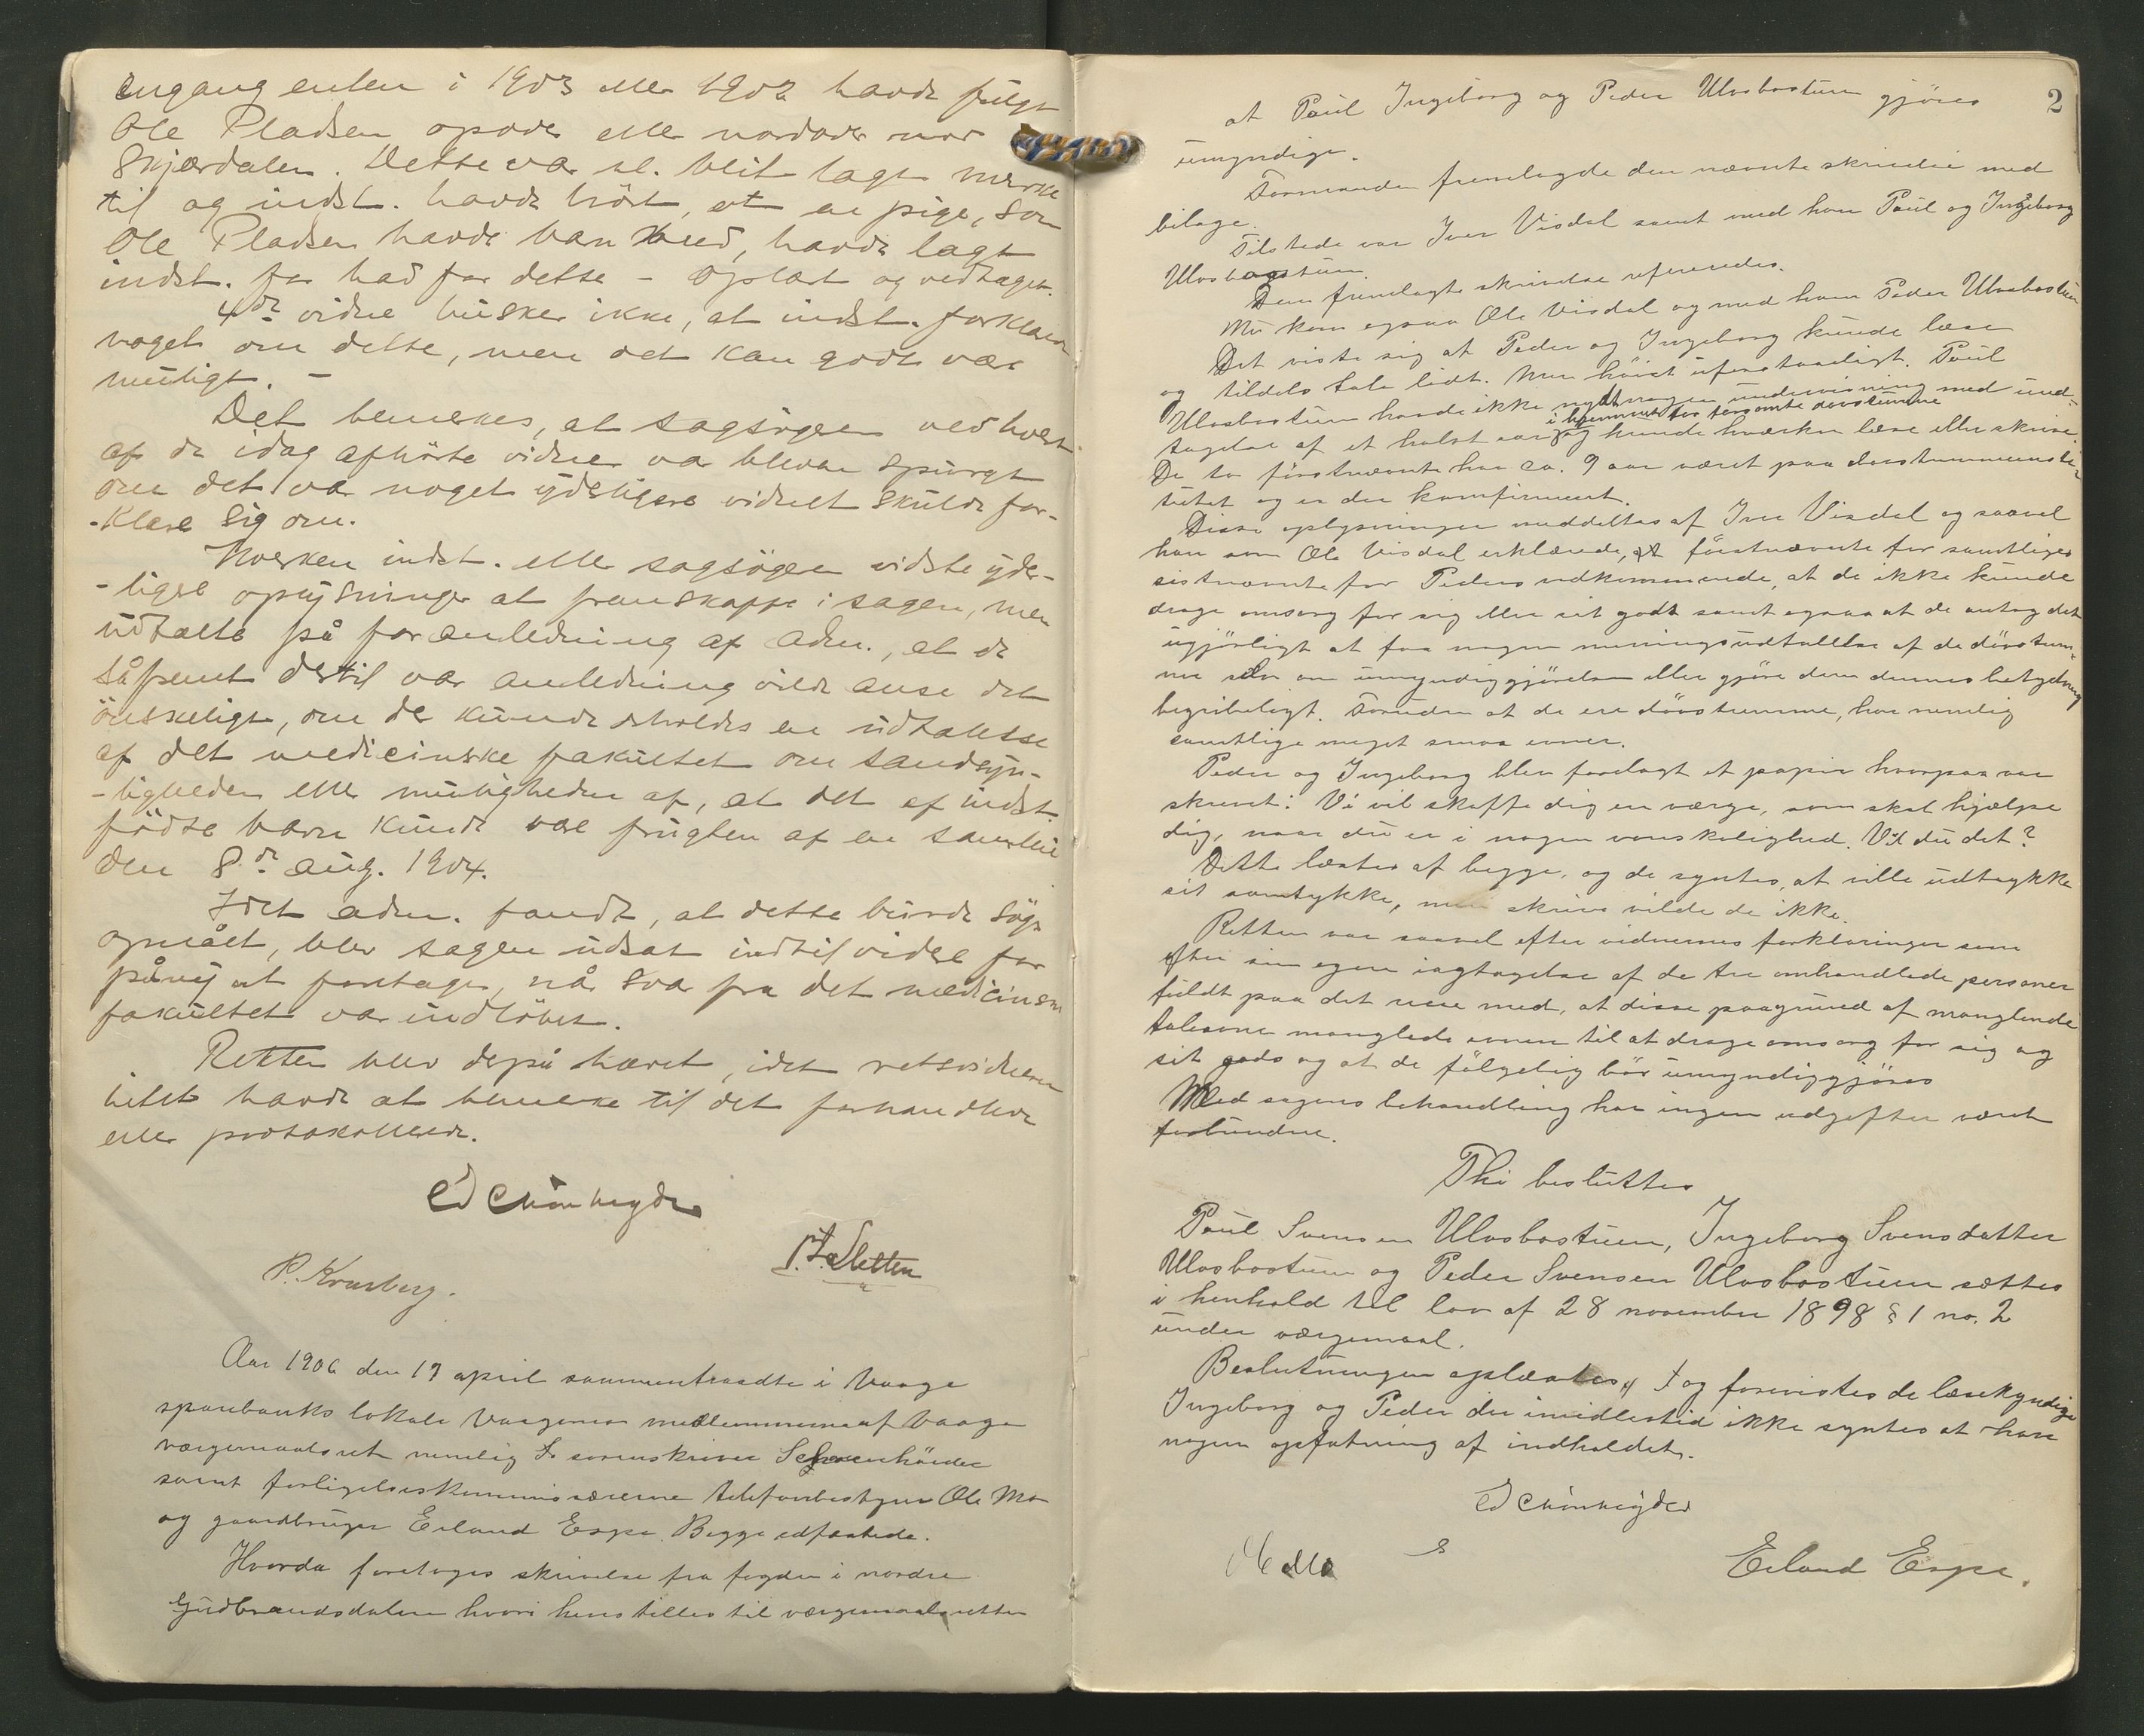 engang enten i 1903 eller 1902 havde fulgt
Ole Pladsen opover eller nordover mod
Skjærdalen. Dette var bleit lagt merke
til og indst. havde hört, at en pige, som
Ole Pladsen havde barn med, havde lagt
indst. for had for dette - Oplæst og vedtaget.
4de vidne husker ikke, at indst. forklared
noget om dette, men det kan godt være
muligt. -
Det bemerkes, at sagsögeren ved hvert
af de idag afhörte vidner var bleven spurgt
om det var noget yderligere vidnet skulde for-
-klare sig om.
Hverken indst. eller sagsögeren vidste yder-
-ligere oplysninger at fremskaffe i sagen, men
udtalte på foranledning af adm., at de
såfremt dertil var anledning vilde anse det
önskeligt, om der kunde erholdes en udtalelse
af det medicinske fakultet om sandsyn-
-ligheden eller muligheden af, at det af indst.
födte barn kunde være frugten af en samleie
den 8de aug. 1904.
Idet adm. fandt, at dette burde söges
opnået, blev sagen udsat indtil videre for
påny at foretages, når svar fra det medicinske
fakultet var indlöbet.
Retten blev derpå hævet, idet retsvidnerne
intet havde at bemerke til det forhandlede
eller protokollerede.
Ed Schönheyder
P. Krusberg.
P. Sletten
Aar 1906 den 19 april sammentraadte i Vaage
sparebanks lokale Vaagemo medlemmerne af Vaage
værgemaalsret nemlig sorenskriver Schönheyder
samt forligelseskommissærerne telefonbestyrer Ole Mo
og gaardbruger Erland Espe. Begge edfæstede.
Hvorda foretages skrivelse fra fogden i nordre
Gudbrandsdalen hvori henstilles til værgemaalsretten
2
at Paul Ingeborg og Peder Ulvsbostuen gjöres
umyndige.
Formanden fremlagde den nævnte skrivelse med
bilage.
Tilstede var Iver Visdal samt med ham Paul og Ingeborg
Ulvsbostuen.
Den fremlagte skrivelse refereredes.
Nu kom ogsaa Ole Visdal og med ham Peder Ulvsbostuen
Det viste sig at Peder og Ingeborg kunde læse
og tildels tale lidt. Men höist uforstaaeligt. Paul
Ulvsbostuen havde ikke nydt nogen undervisning med und-
i hjemmet for tersomte dövstumme
tagelse af et halvt aar og kunde hverken læse eller skrive.
De to förstnævnte har ca. 9 aar været paa dövstummeinsti-
tutet og er der konfirmeret.
Disse oplysninger meddeltes af Iver Visdal og saavel
han som Ole Visdal erklærede, at förstnævnte for samtliges
sistnævnte for Peders vedkommende, at de ikke kunde
drage omsorg for sig eller sit gods samt ogsaa at de antog det
ugjörligt at faa nogen meningsudtalelse af de dövstum-
me selv om umyndiggjörelsen eller gjöre dem dennes betydning
begribeligt. Foruden at de ere dövstumme, har nemlig
samtlige meget smaa evner.
Peder og Ingeborg blev forelagt et papir hvorpaa var
skrevet: Vi vil skaffe dig en værge, som skal hjælpe
dig, naar du er i nogen vanskelighed. Vil du det?
Dette læstes af begge, og de syntes, at ville udtrykke
sit samtykke, men skrive vilde de ikke.
Retten var saavel efter vidnernes forklaringer som
efter sin egen iagttagelse af de tre omhandlede personer
fuldt paa det rene med, at disse paagrund af manglende
taleevne manglede evnen til at drage omsorg for sig og
sit gods og at de fölgelig bör umyndiggjöres
Med sagens behandling har ingen udgifter været
forbundne.
Thi besluttes
Paul Svensen Ulvsbostuen, Ingeborg Svensdatter
Ulvsbostuen og Peder Svensen Ulvsbostuen sættes
i henhold til lov af 28 november 1898 § 1 no. 2
under værgemaal.
Beslutningen oplæstes, og forevistes de læsekyndige
Ingeborg og Peder der imidlertid ikke syntes at have
nogen opfatning af indholdet.
Ed Schönheyder
Ole Mo
Erland Espe.